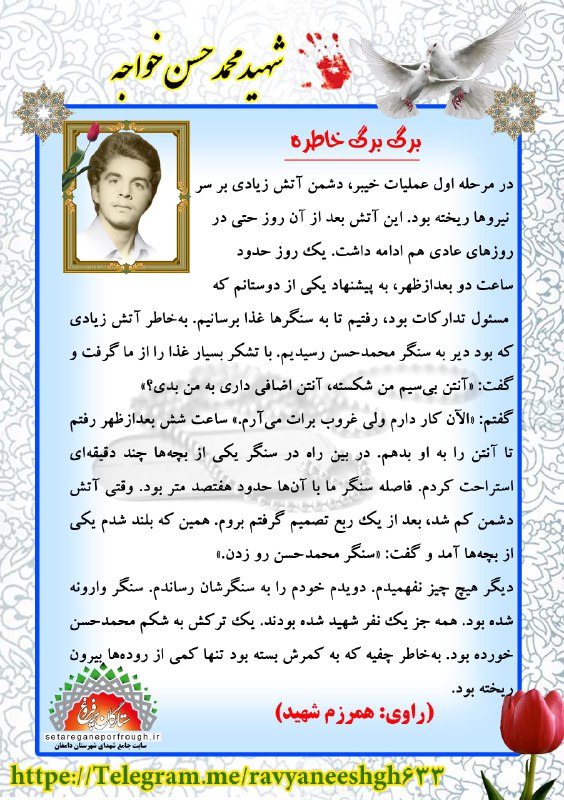 شهید محمد حسن خواجه
برگ برگ خاطره
در مرحله اول عملیات خیبر، دشمن آتش زیادی بر سر
نیروها ریخته بود. این آتش بعد از آن روز حتی در
روزهای عادی هم ادامه داشت. یک روز حدود
ساعت دو بعدازظهر، به پیشنهاد یکی از دوستانم که
مسئول تدارکات بود، رفتیم تا به سنگرها غذا برسانیم. به‌خاطر آتش زیادی
که بود دیر به سنگر محمدحسن رسیدیم. با تشکر بسیار غذا را از ما گرفت و
گفت: «آنتن بی‌سیم من شکسته، آنتن اضافی داری به من بدی؟»
گفتم: «الآن کار دارم ولی غروب برات می‌آرم.» ساعت شش بعدازظهر رفتم
تا آنتن را به او بدهم. در بین راه در سنگر یکی از بچه‌ها چند دقیقه‌ای
استراحت کردم. فاصله سنگر ما با آن‌ها حدود هفتصد متر بود. وقتی آتش
دشمن کم شد، بعد از یک ربع تصمیم گرفتم بروم. همین که بلند شدم یکی
از بچه‌ها آمد و گفت: «سنگر محمدحسن رو زدن.»
دیگر هیچ چیز نفهمیدم. دویدم خودم را به سنگرشان رساندم. سنگر وارونه
شده بود. همه جز یک نفر شهید شده بودند. یک ترکش به شکم محمدحسن
خورده بود. به‌خاطر چفیه که به کمرش بسته بود تنها کمی از روده‌ها بیرون
ریخته بود.
(راوی: همرزم شهید)
ستارگان پرفروغ
setareganeporfrough.ir
سایت جامع شهدای شهرستان دامغان
https://Telegram.me/ravyaneeshgh۶۳۳